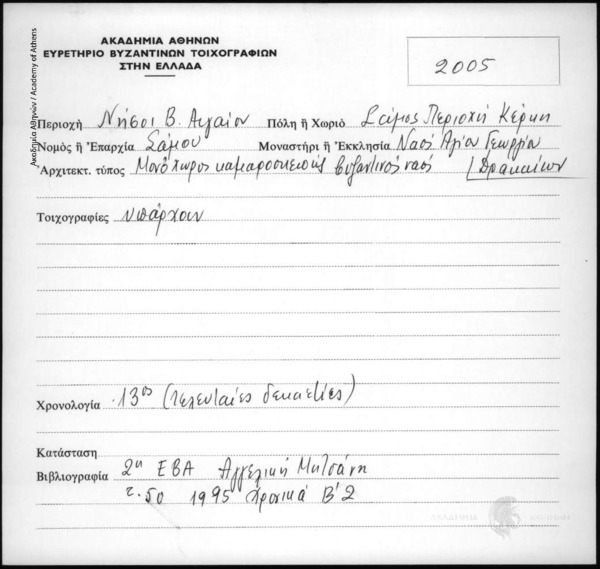 ΑΚΑΔΗΜΙΑ ΑΘΗΝΩΝ
ΕΥΡΕΤΗΡΙΟ ΒΥΖΑΝΤΙΝΩΝ ΤΟΙΧΟΓΡΑΦΙΩΝ
ΣΤΗΝ ΕΛΛΑΔΑ
2005
Ακαδημία Αθηνών / Academy of Athens
Περιοχή Νήσοι Β. Αιγαίου Πόλη ἤ Χωριό Σάμος Περιοχή Κέρκη
Νομός ἤ Ἐπαρχία Σάμου Μοναστήρι ἤ Ἐκκλησία Ναός Αγίου Γεωργίου
Ἀρχιτεκτ. τύπος Μονόχωρος καμαροσκεπής βυζαντινός ναός (Δρακαίων
Τοιχογραφίες υπάρχουν
Χρονολογία 13ος (τελευταίες δεκαετίες)
Κατάσταση
Βιβλιογραφία 2η ΕΒΑ Αγγελική Μητσάνη
τ. 50 1995 Χρονικά Β'2
ΑΚΑΔΗΜΙΑ ΑΘΗΝΩΝ